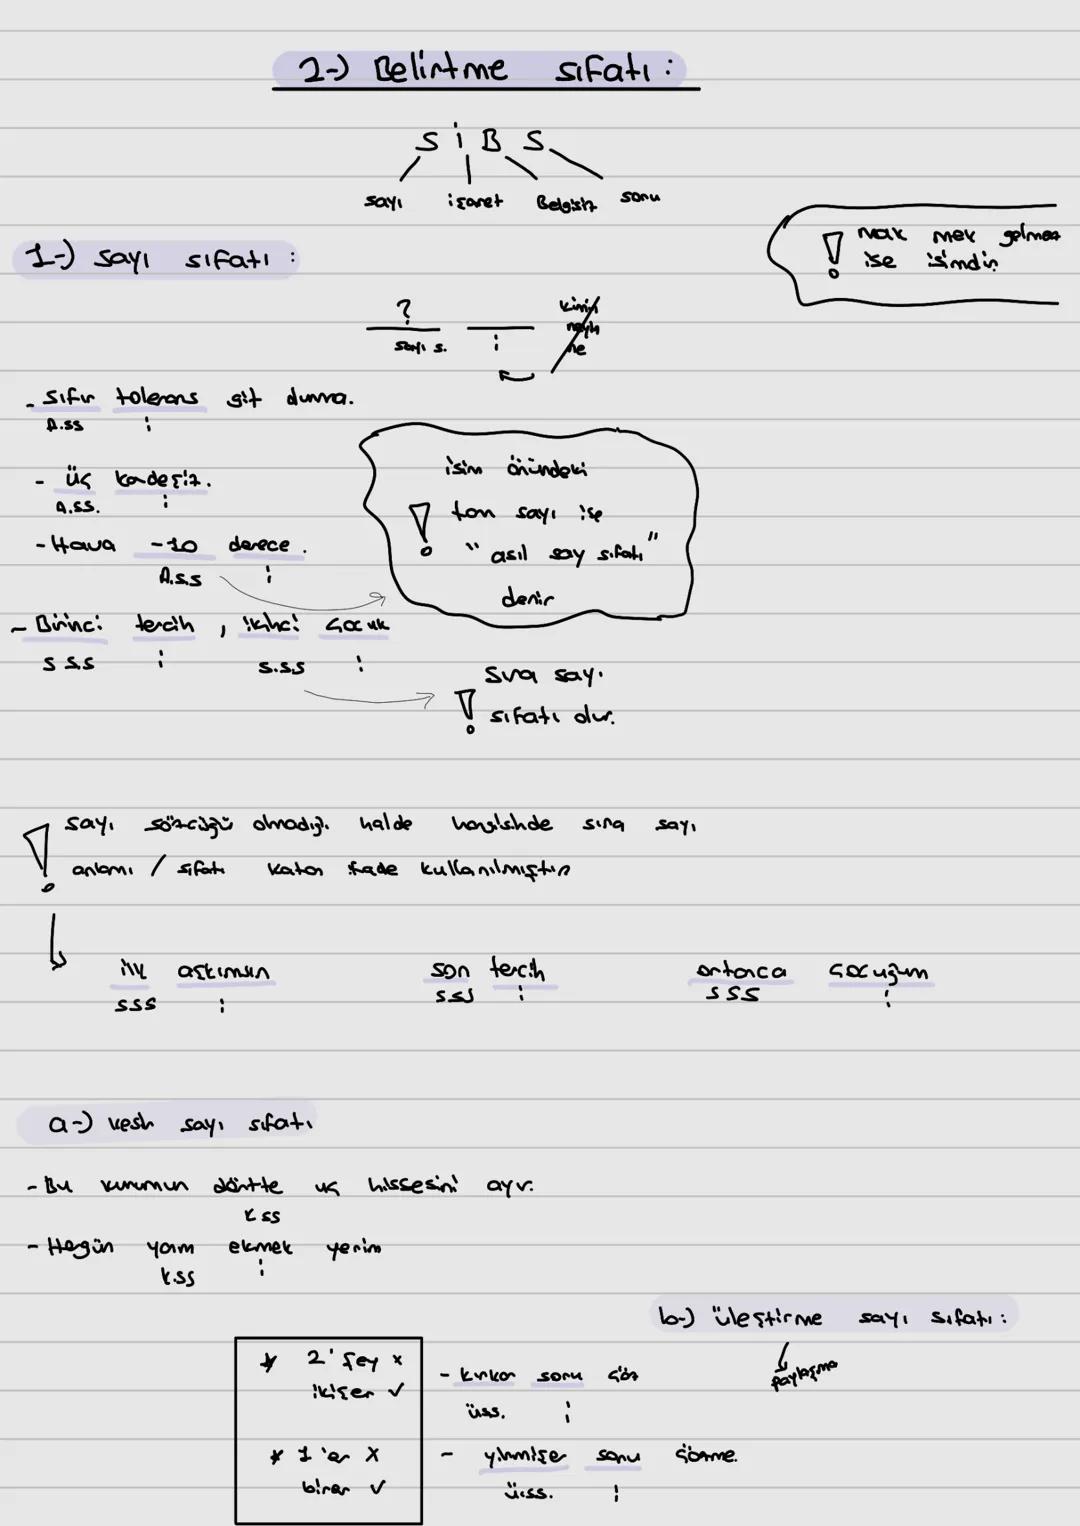 2-) Belirtme sıfatı :
S i B S
sayı işaret Belgisiz soru
1-) sayı sıfatı :
! mak mek gelmez
ise isimdir
?
sayı s. i
kimin
neyin
ne
- Sıfır tolerans git durma.
A.ss i
- üç kardeşiz.
A.ss. i
- Hava -10 derece.
A.s.s i
isim önündeki
! tam sayı ise
" asıl say sıfatı "
denir
- Birinci tercih , ikinci çocuk
s s.s i s.s.s i
! Sıra sayı
sıfatı olur.
! sayı sözcüğü olmadığı halde sıra sayı
anlamı / sıfatı katan ifade kullanılmıştır
ilk aşkımsın son tercih ortanca çocuğum
sss i sss i sss i
a-) kesir sayı sıfatı
- Bu kurumun dörtte üç hissesini ayır.
k ss
- Hergün yarım ekmek yerim
k.ss i
b-) üleştirme sayı sıfatı :
paylaşma
* 2'şey x
ikişer ✓
* 1'er x
birer ✓
- kırkar soru çöz
üss. i
- yirmişer soru çözme.
ü.ss. i